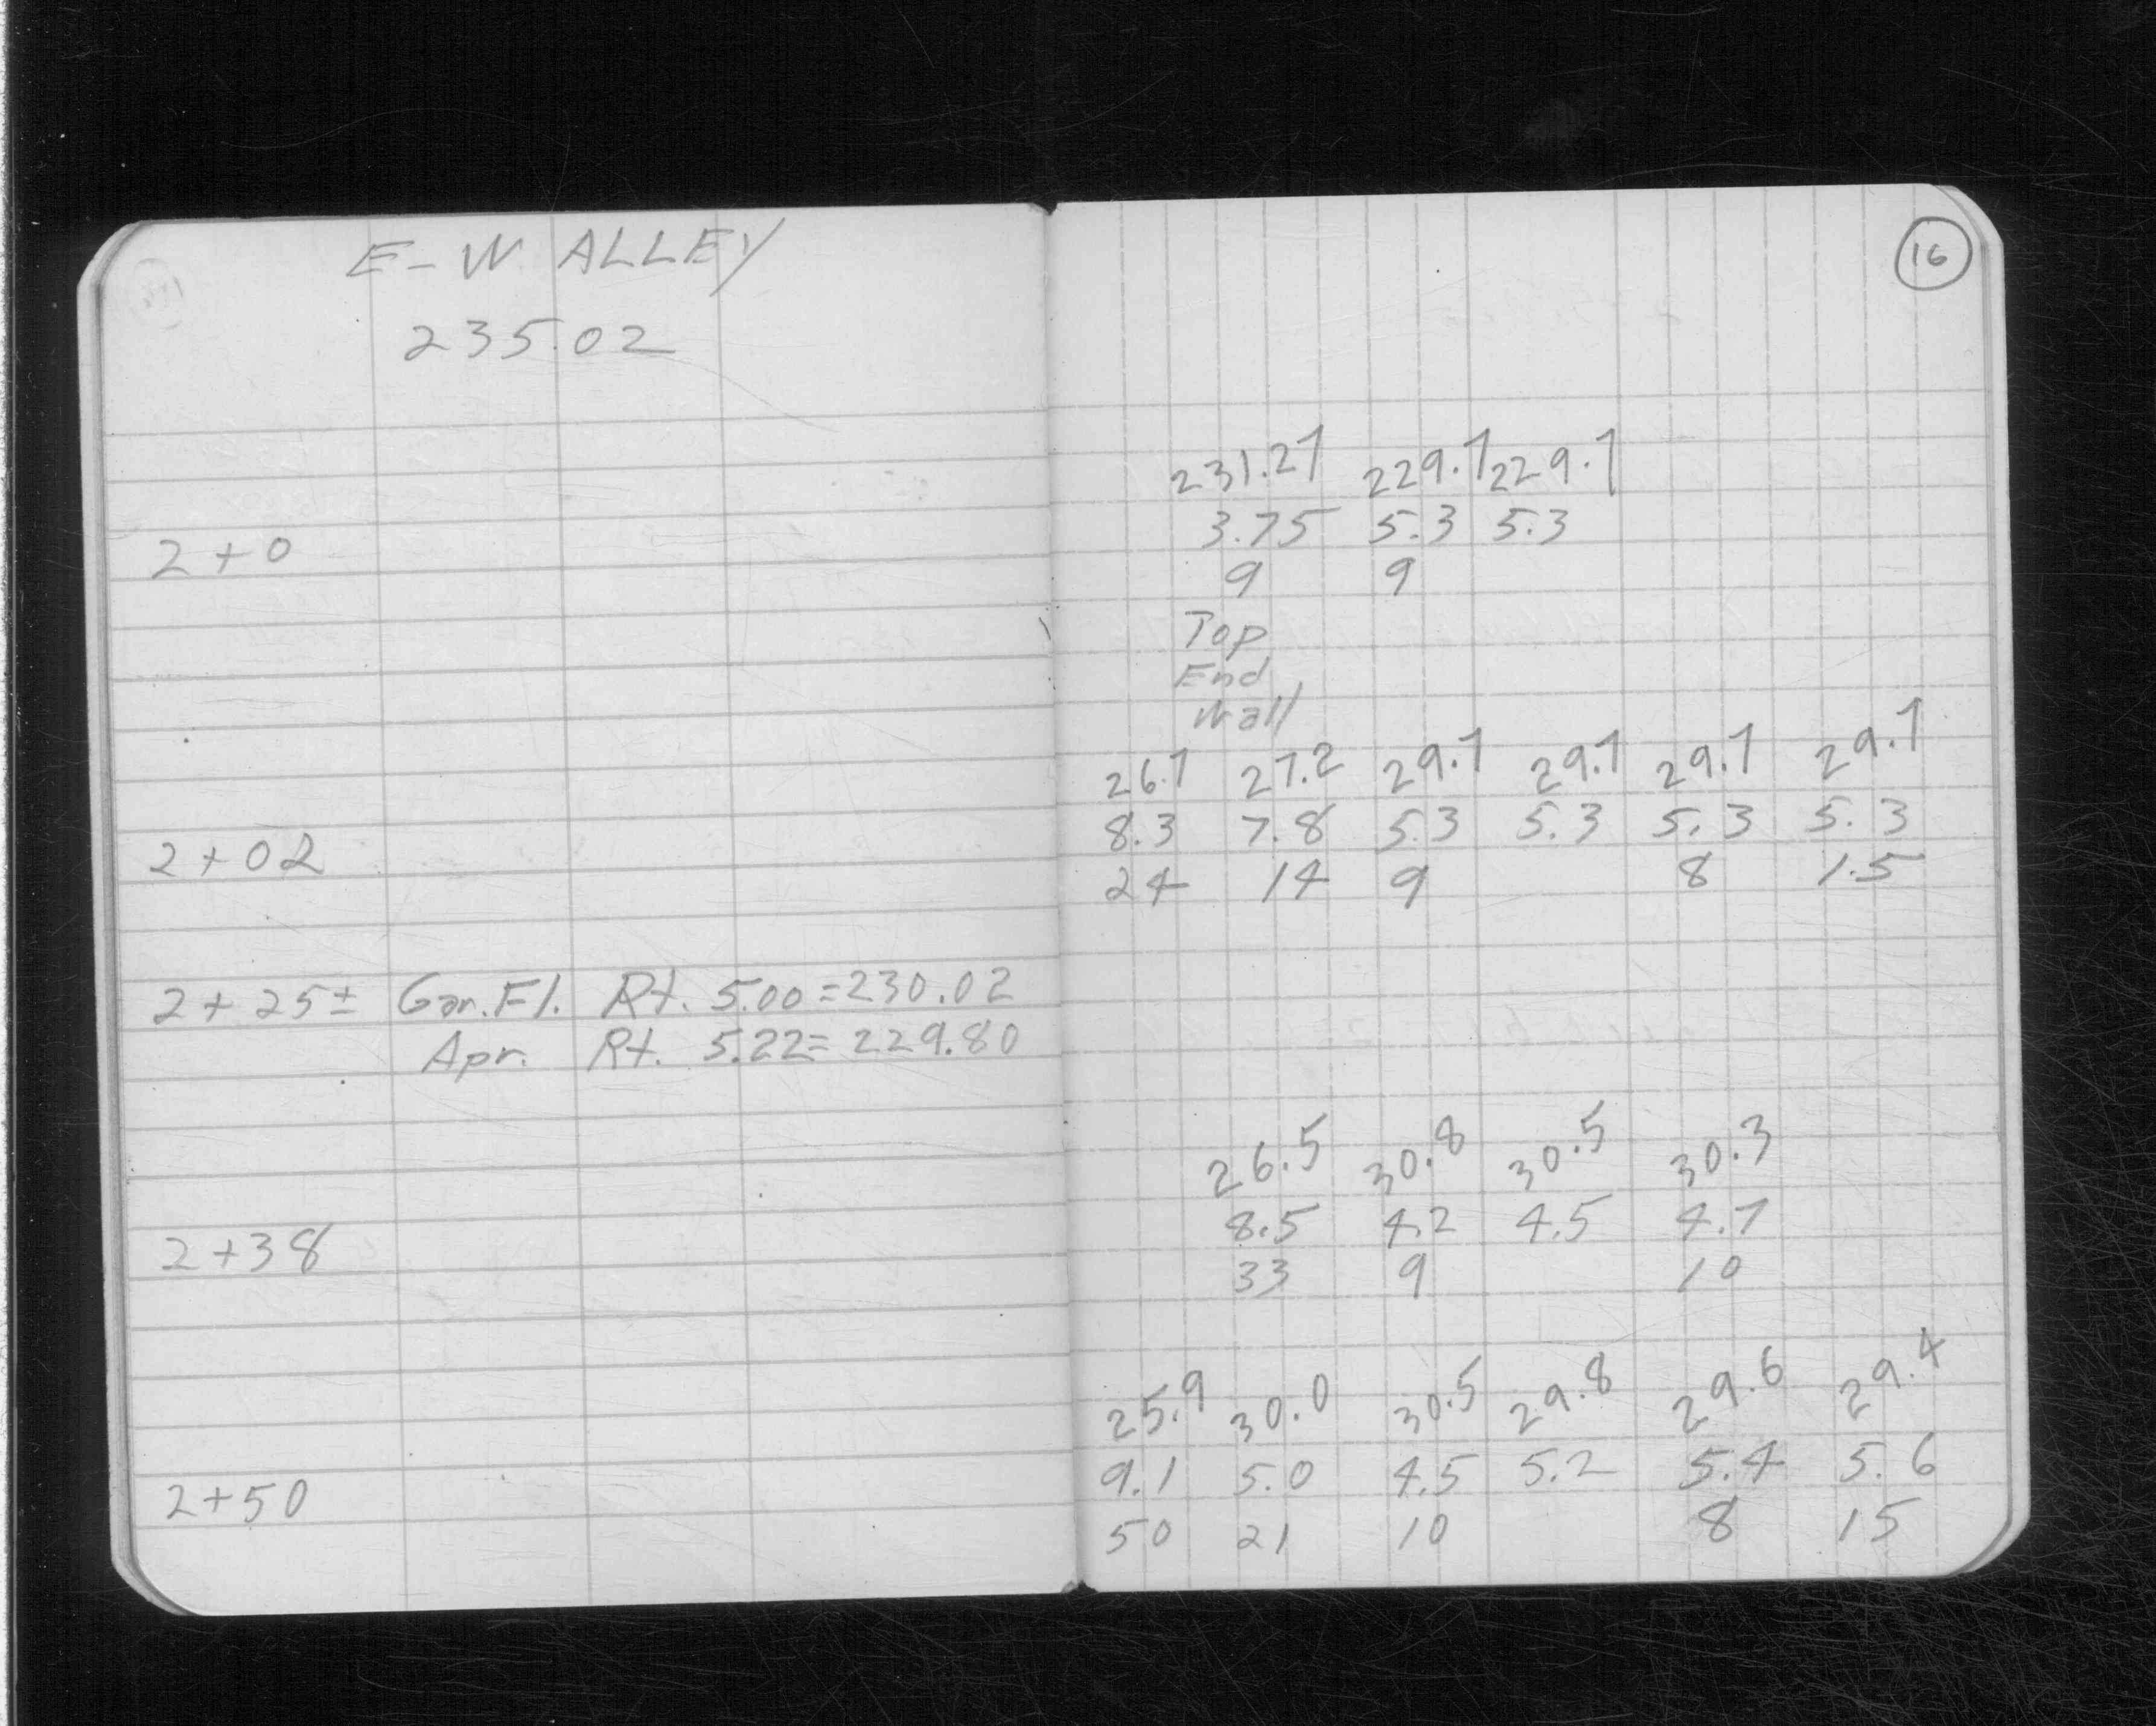 E-W ALLEY
235.02
2+0
2+02
2+25± Gar.Fl. Rt. 5.00=230.02
Apr. Rt. 5.22=229.80
2+38
2+50
16
231.27 229.7 229.7
3.75 5.3 5.3
9 9
Top
End
Wall
26.7 27.2 29.7 29.7 29.7 29.7
8.3 7.8 5.3 5.3 5.3 5.3
24 14 9 8 1.5
26.5 30.8 30.5 30.3
8.5 4.2 4.5 4.7
33 9 10
25.9 30.0 30.5 29.8 29.6 29.4
9.1 5.0 4.5 5.2 5.4 5.6
50 21 10 8 15